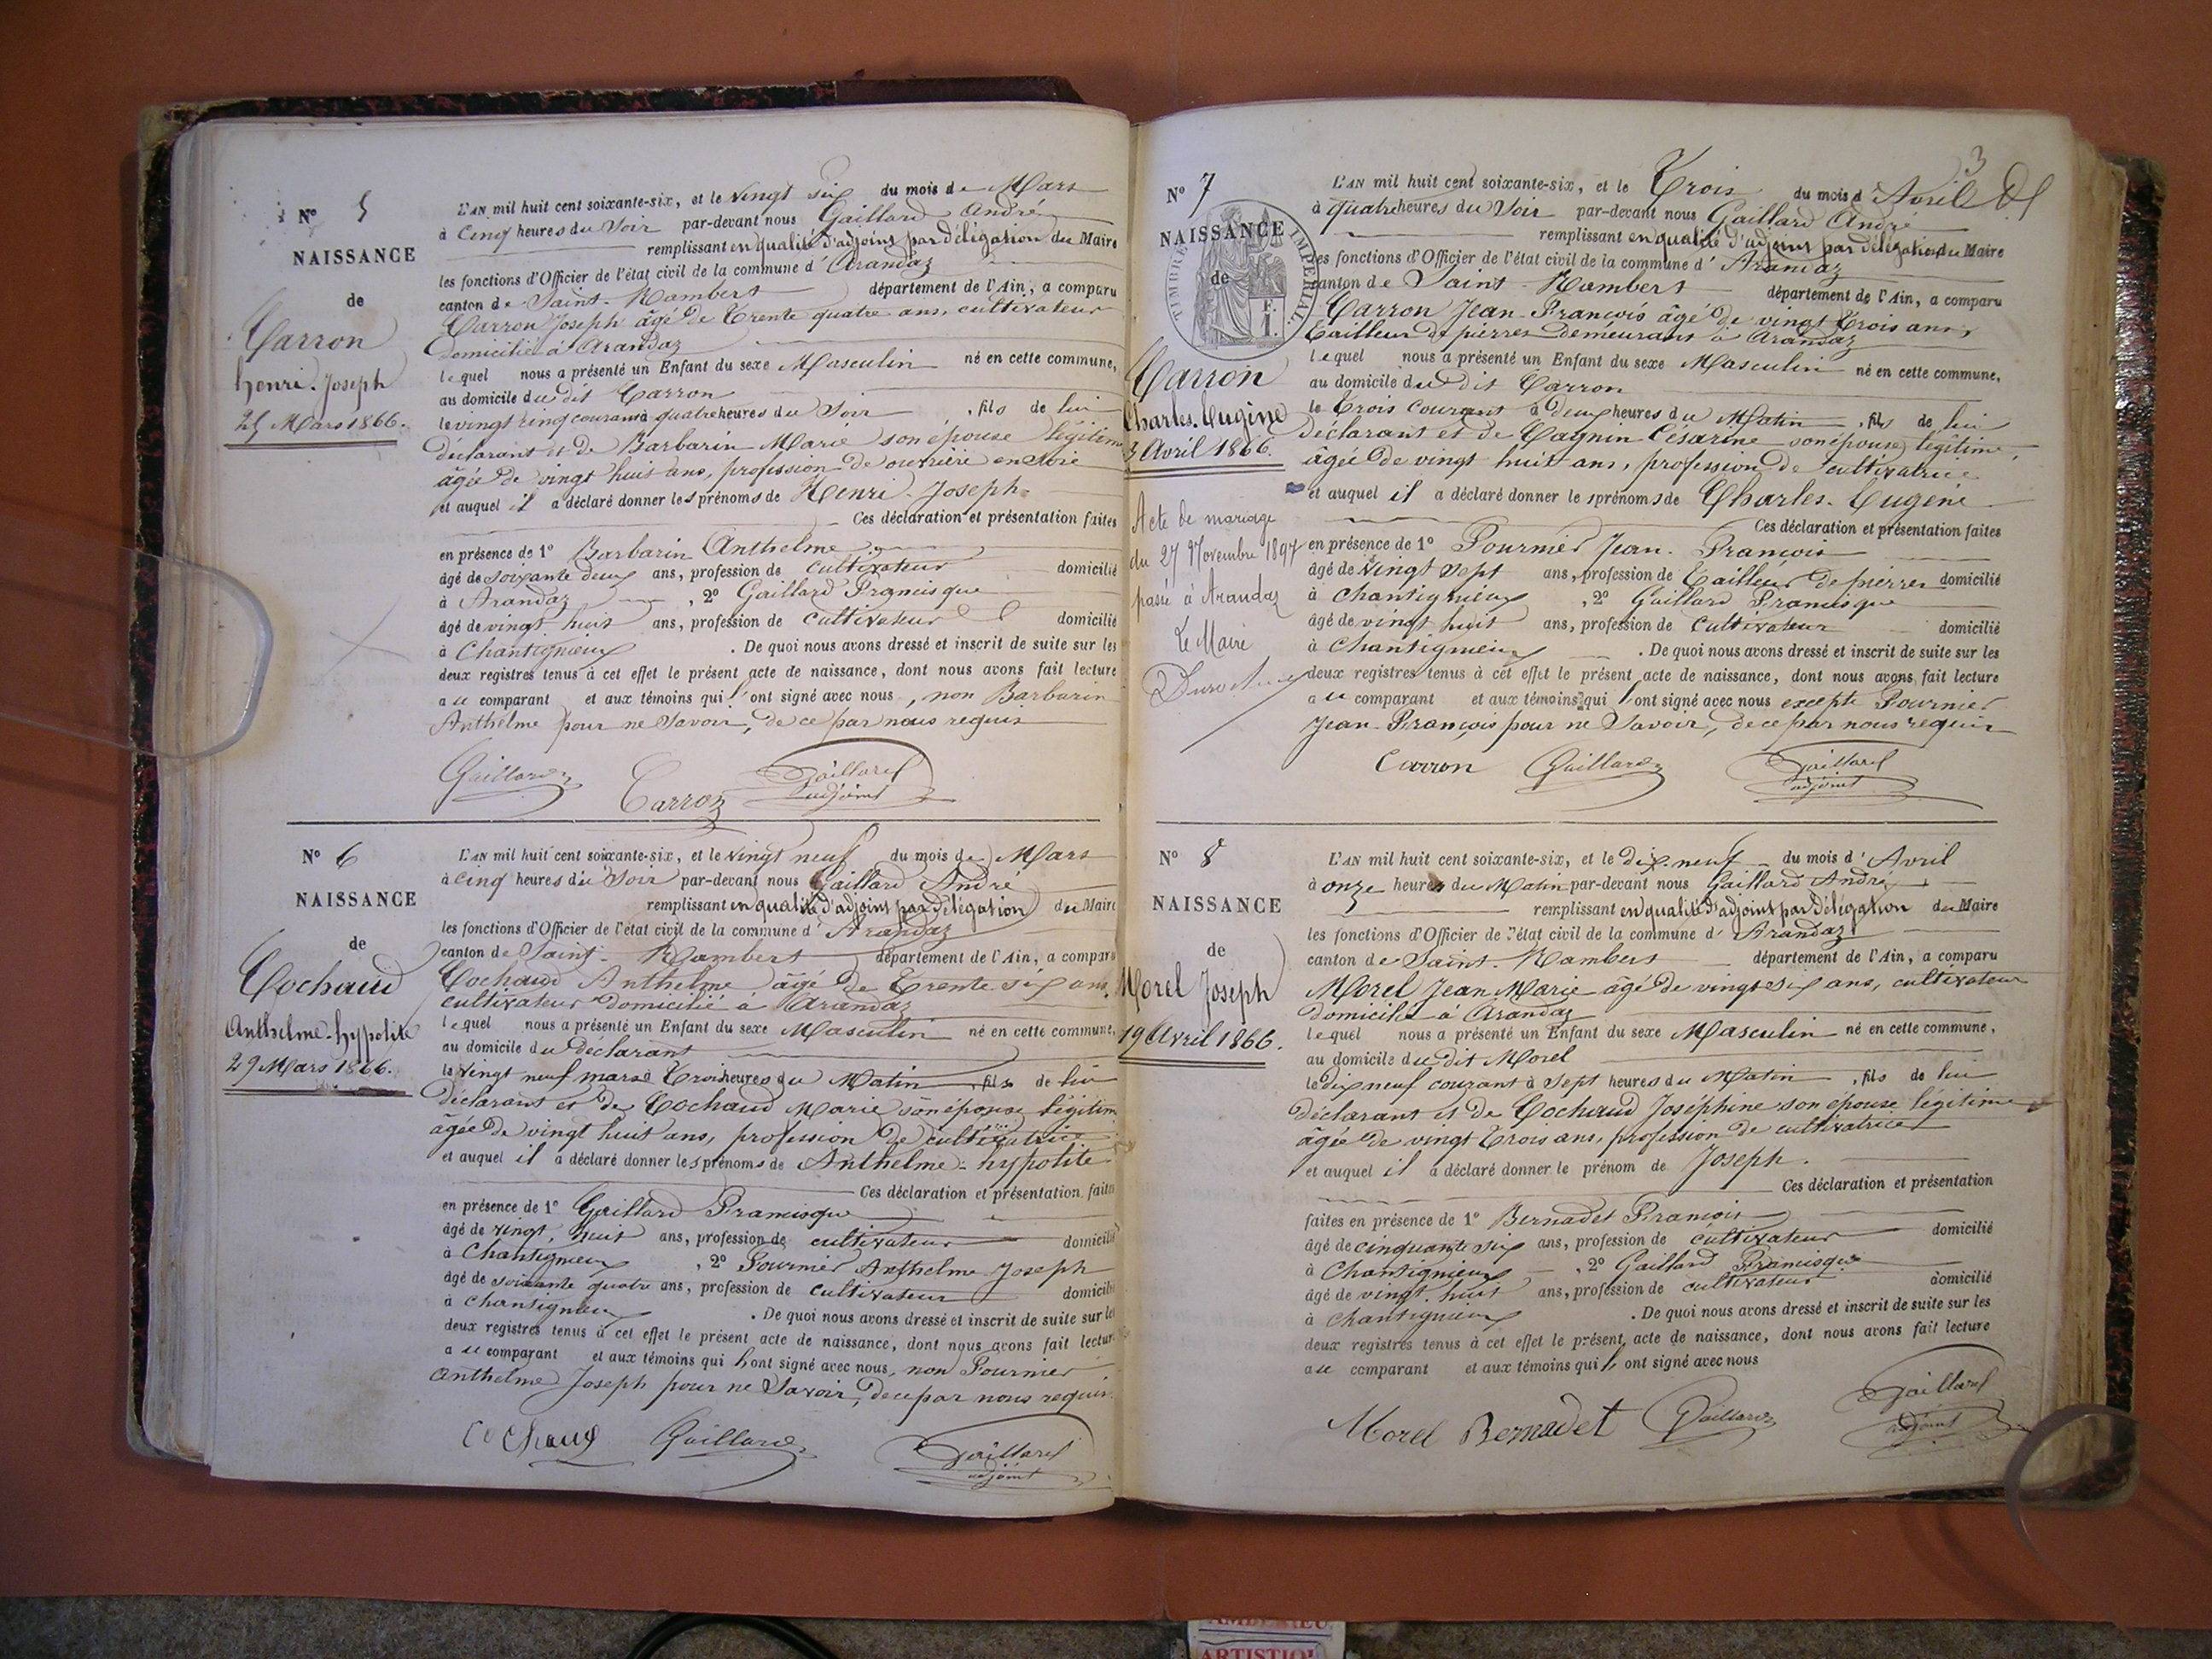 N° 5
NAISSANCE
de
Carron
henri-Joseph
25 Mars 1866.
L'AN mil huit cent soixante-six, et le vingt six du mois de Mars
à Cinq heures du Soir par-devant nous Gaillard André
remplissant en qualité d'adjoint par délégation du Maire
les fonctions d'Officier de l'état civil de la commune d'Arandaz
canton de Saint-Rambert département de l'Ain, a comparu
Carron Joseph âgé de Trente quatre ans, cultivateur
domicilié à Arandaz
lequel nous a présenté un Enfant du sexe Masculin né en cette commune,
au domicile du dit Carron
le vingt cinq courant à quatre heures du Soir, fils de lui
déclarant et de Barbarin Marie son épouse légitime
âgée de vingt huit ans, profession de ouvrière en Soie
et auquel il a déclaré donner les prénoms de Henri-Joseph.
Ces déclaration et présentation faites
en présence de 1° Barbarin Anthelme
âgé de soixante deux ans, profession de cultivateur domicilié
à Arandaz, 2° Gaillard Francisque
âgé de vingt huit ans, profession de cultivateur domicilié
à Chantignieux. De quoi nous avons dressé et inscrit de suite sur les
deux registres tenus à cet effet le présent acte de naissance, dont nous avons fait lecture
au comparant et aux témoins qui l'ont signé avec nous, non Barbarin
Anthelme pour ne Savoir, de ce par nous requis
Gaillard Carron Gaillard
adjoint
N° 6
NAISSANCE
de
Cochaud
Anthelme-hypolite
29 Mars 1866.
L'AN mil huit cent soixante-six, et le vingt neuf du mois de Mars
à cinq heures du Soir par-devant nous Gaillard André
remplissant en qualité d'adjoint par délégation du Maire
les fonctions d'Officier de l'état civil de la commune d'Arandaz
canton de Saint-Rambert département de l'Ain, a comparu
Cochaud Anthelme âgé de Trente six ans,
cultivateur domicilié à Arandaz
lequel nous a présenté un Enfant du sexe Masculin né en cette commune,
au domicile du déclarant
le vingt neuf mars à Trois heures du Matin, fils de lui
déclarant et de Cochaud Marie son épouse légitime
âgée de vingt huit ans, profession de cultivatrice
et auquel il a déclaré donner les prénoms de Anthelme-hypolite
Ces déclaration et présentation faites
en présence de 1° Gaillard Francisque
âgé de vingt huit ans, profession de cultivateur domicilié
à Chantignieux, 2° Fournier Anthelme Joseph
âgé de soixante quatre ans, profession de cultivateur domicilié
à Chantignieux. De quoi nous avons dressé et inscrit de suite sur les
deux registres tenus à cet effet le présent acte de naissance, dont nous avons fait lecture
au comparant et aux témoins qui l'ont signé avec nous, non Fournier
Anthelme Joseph pour ne Savoir, de ce par nous requis.
Cochaud Gaillard Gaillard
adjoint
3
N° 7
NAISSANCE
de
TIMBRE IMPERIAL
1 F.
Carron
Charles-Eugène
3 Avril 1866.
Acte de mariage
du 27 Novembre 1897
passé à Arandaz
Le Maire
L'AN mil huit cent soixante-six, et le Trois du mois d'Avril
à quatre heures du Soir par-devant nous Gaillard André
remplissant en qualité d'adjoint par délégation du Maire
les fonctions d'Officier de l'état civil de la commune d'Arandaz
canton de Saint-Rambert département de l'Ain, a comparu
Carron Jean-François âgé de vingt Trois ans,
Tailleur de pierres demeurant à Arandaz
lequel nous a présenté un Enfant du sexe Masculin né en cette commune,
au domicile du dit Carron
le Trois courant à deux heures du Matin, fils de lui
déclarant et de Cagnin Césarine son épouse légitime,
âgée de vingt huit ans, profession de cultivatrice
et auquel il a déclaré donner les prénoms de Charles-Eugène
Ces déclaration et présentation faites
en présence de 1° Fournier Jean-François
âgé de vingt sept ans, profession de Tailleur de pierres domicilié
à Chantignieux, 2° Gaillard Francisque
âgé de vingt huit ans, profession de Cultivateur domicilié
à Chantignieux. De quoi nous avons dressé et inscrit de suite sur les
deux registres tenus à cet effet le présent acte de naissance, dont nous avons fait lecture
au comparant et aux témoins qui l'ont signé avec nous excepté Fournier
Jean-François pour ne Savoir, de ce par nous requis
Carron Gaillard Gaillard
adjoint
N° 8
NAISSANCE
de
Morel Joseph
19 Avril 1866.
L'AN mil huit cent soixante-six, et le dix-neuf du mois d'Avril
à onze heures du Matin par-devant nous Gaillard André
remplissant en qualité d'adjoint par délégation du Maire
les fonctions d'Officier de l'état civil de la commune d'Arandaz
canton de Saint-Rambert département de l'Ain, a comparu
Morel Jean-Marie âgé de vingt six ans, cultivateur
domicilié à Arandaz
lequel nous a présenté un Enfant du sexe Masculin né en cette commune,
au domicile du dit Morel
le dix neuf courant à sept heures du Matin, fils de lui
déclarant et de Cochaud Joséphine son épouse légitime
âgée de vingt Trois ans, profession de cultivatrice
et auquel il a déclaré donner le prénom de Joseph.
Ces déclaration et présentation
faites en présence de 1° Bernadet François
âgé de cinquante six ans, profession de cultivateur domicilié
à Chantignieux, 2° Gaillard Francisque
âgé de vingt huit ans, profession de cultivateur domicilié
à Chantignieux. De quoi nous avons dressé et inscrit de suite sur les
deux registres tenus à cet effet le présent acte de naissance, dont nous avons fait lecture
au comparant et aux témoins qui l'ont signé avec nous
Morel Bernadet Gaillard Gaillard
adjoint